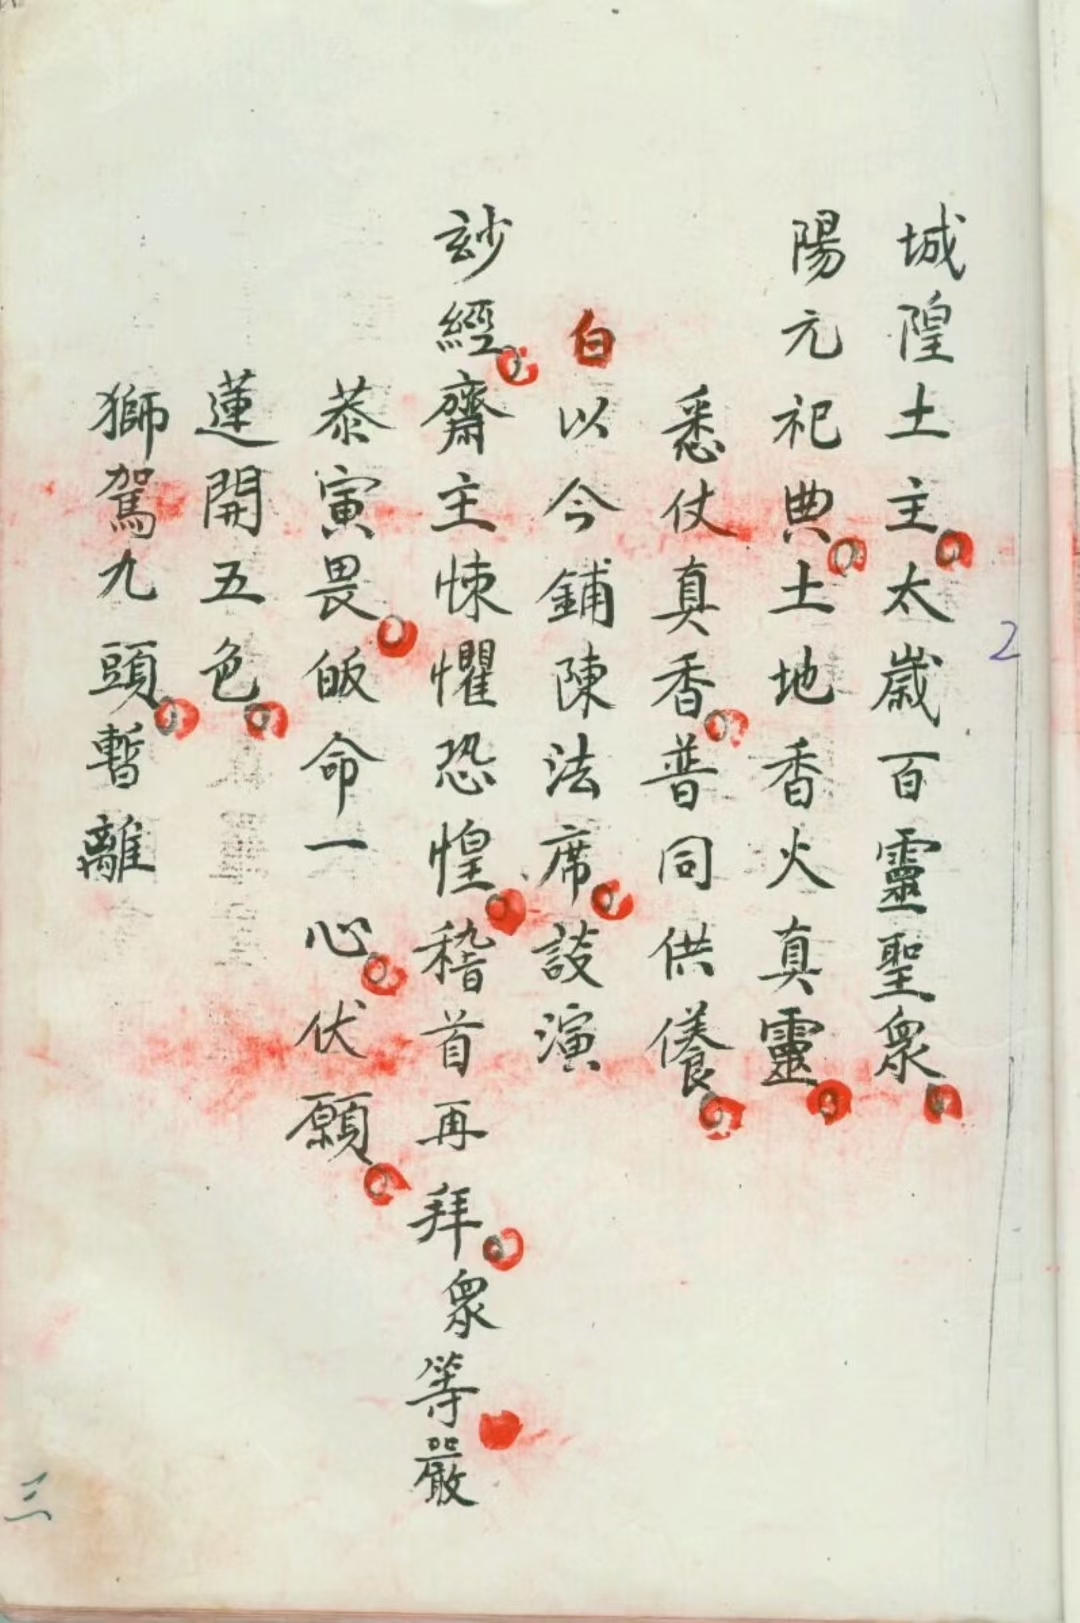 城隍土主太歲百靈聖眾
陽元祀典土地香火真靈
悉仗真香普同供養
白以今鋪陳法席談演
玅經齋主悚懼恐惶稽首再拜眾等嚴
恭寅畏皈命一心伏願
蓮開五色
獅駕九頭暫離
三
2